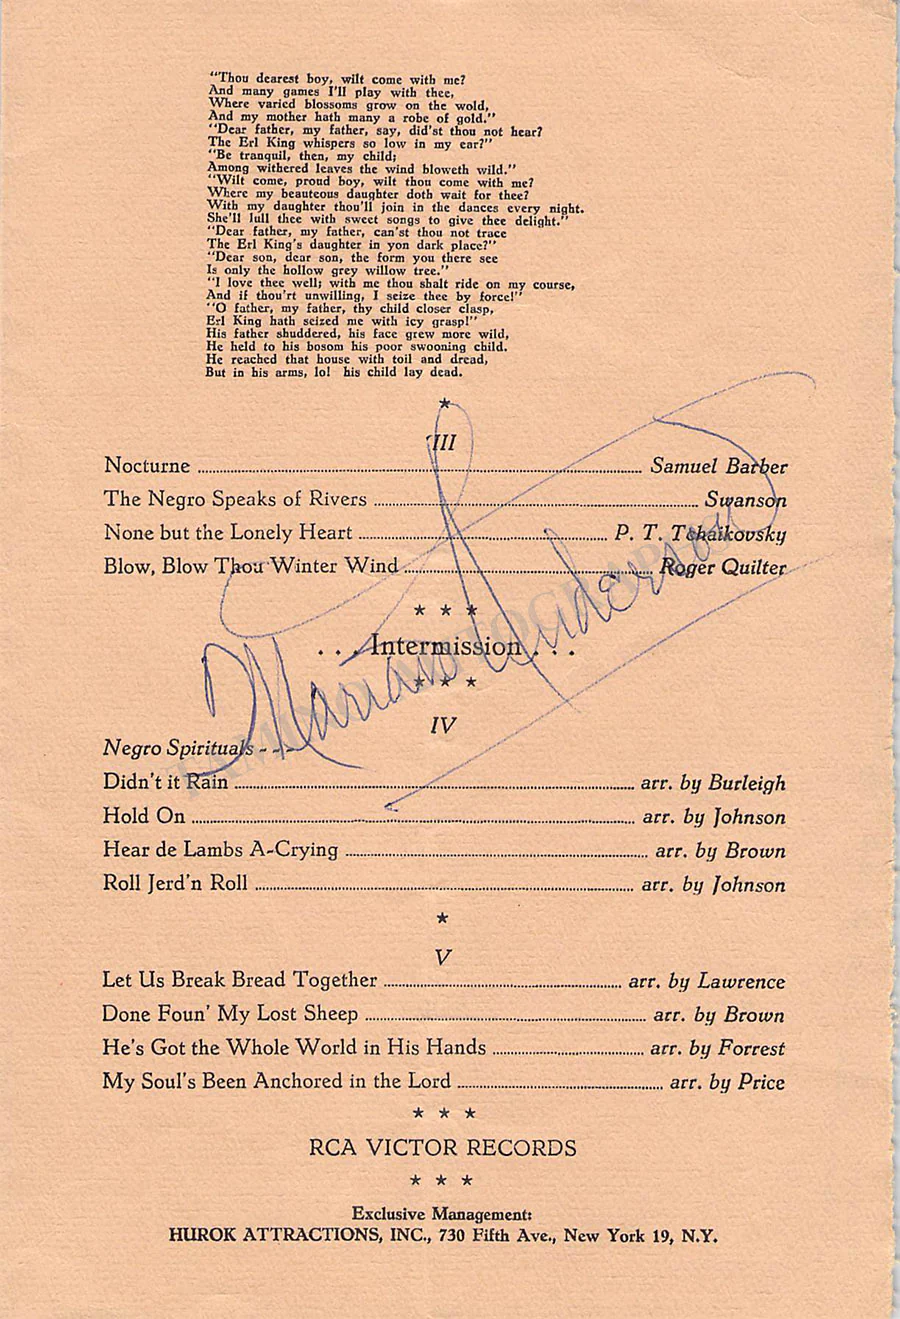 "Thou dearest boy, wilt come with me?
And many games I'll play with thee,
Where varied blossoms grow on the wold,
And my mother hath many a robe of gold."
"Dear father, my father, say, did'st thou not hear?
The Erl King whispers so low in my ear?"
"Be tranquil, then, my child;
Among withered leaves the wind bloweth wild."
"Wilt come, proud boy, wilt thou come with me?
Where my beauteous daughter doth wait for thee?
With my daughter thou'll join in the dances every night.
She'll lull thee with sweet songs to give thee delight."
"Dear father, my father, can'st thou not trace
The Erl King's daughter in yon dark place?"
"Dear son, dear son, the form you there see
Is only the hollow grey willow tree."
"I love thee well; with me thou shalt ride on my course,
And if thou'rt unwilling, I seize thee by force!"
"O father, my father, thy child closer clasp,
Erl King hath seized me with icy grasp!"
His father shuddered, his face grew more wild,
He held to his bosom his poor swooning child.
He reached that house with toil and dread,
But in his arms, lo! his child lay dead.
*
III
Nocturne ... Samuel Barber
The Negro Speaks of Rivers ... Swanson
None but the Lonely Heart ... P. T. Tchaikovsky
Blow, Blow Thou Winter Wind ... Roger Quilter
* * *
. . . Intermission . . .
Marian Anderson
TAMINO AUTOGRAPHS
* * *
IV
Negro Spirituals - - -
Didn't it Rain ... arr. by Burleigh
Hold On ... arr. by Johnson
Hear de Lambs A-Crying ... arr. by Brown
Roll Jerd'n Roll ... arr. by Johnson
*
V
Let Us Break Bread Together ... arr. by Lawrence
Done Foun' My Lost Sheep ... arr. by Brown
He's Got the Whole World in His Hands ... arr. by Forrest
My Soul's Been Anchored in the Lord ... arr. by Price
* * *
RCA VICTOR RECORDS
* * *
Exclusive Management:
HUROK ATTRACTIONS, INC., 730 Fifth Ave., New York 19, N.Y.